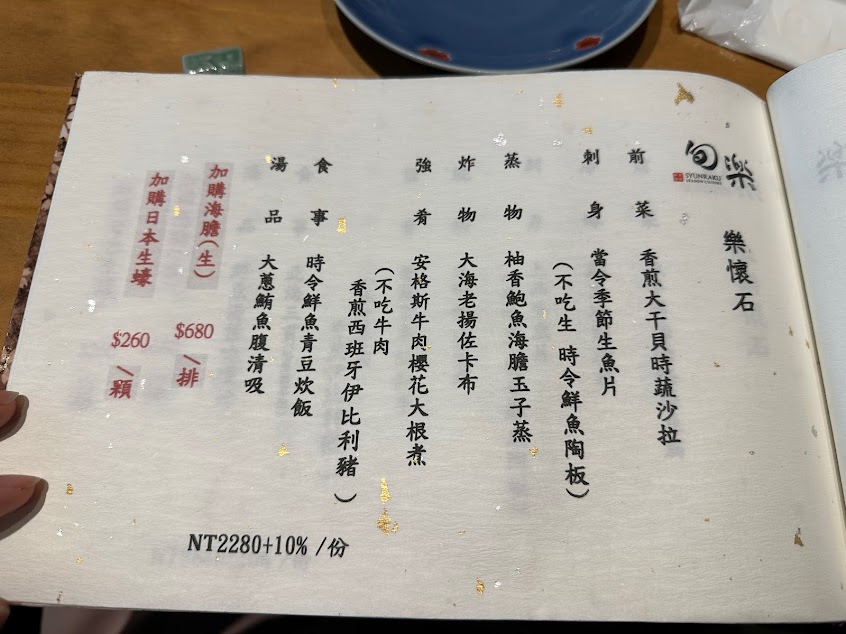 旬樂
SYUNRAKU
SEASON CUISINE
樂懷石
前菜 香煎大干貝時蔬沙拉
刺身 當令季節生魚片
(不吃生 時令鮮魚陶板)
蒸物 柚香鮑魚海膽玉子蒸
炸物 大海老揚佐卡布
強肴 安格斯牛肉櫻花大根煮
(不吃牛肉
香煎西班牙伊比利豬)
食事 時令鮮魚青豆炊飯
湯品 大蔥鮪魚腹清吸
加購海膽(生) $680/排
加購日本生蠔 $260/顆
NT2280+10% /份